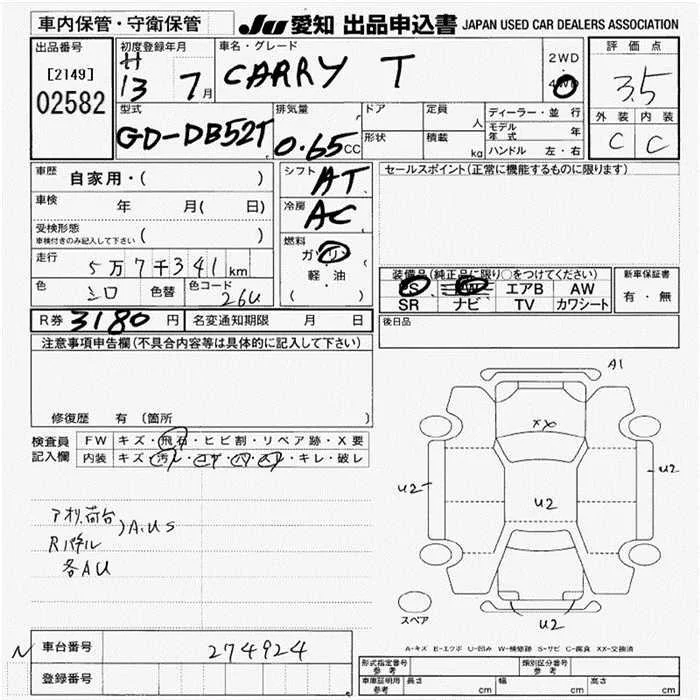 車内保管・守衛保管 JU 愛知 出品申込書 JAPAN USED CAR DEALERS ASSOCIATION
出品番号 初度登録年月 車名・グレード 評価点
[2149] H 13 7月 CARRY T 2WD・4WD 3.5
02582
型式 排気量 ドア 定員 人 ディーラー・並行 外装 内装
GD-DB52T 0.65CC 形状 積載 kg モデル年式 年 C C
ハンドル 左・右
車歴 自家用・( ) シフト AT セールスポイント(正常に機能するものに限ります)
車検 年 月( 日) 冷房 AC
受検形態 ( )
車検付きのみ記入して下さい
燃料 ガソリン
走行 5万7千341km 軽油
( )
装備品(純正品に限り○をつけてください) 新車保証書
色 シロ 色替 色コード 26U PS PW エアB AW 有・無
SR ナビ TV カワシート
R券 3180円 名変通知期限 月 日 後日品
注意事項申告欄(不具合内容等は具体的に記入して下さい)
修復歴 有(箇所
検査員 FW キズ・飛石・ヒビ割・リペア跡・X要
記入欄 内装 キズ・汚レ・コゲ・穴・スレ・キレ・破レ
アオリ、荷台
Rパネル )A.U S
各AU
A1
XX
U2
U2
U2
U2
スペア
A-キズ E-エクボ U-凹み W-補修跡 S-サビ C-腐食 XX-交換済
N 車台番号 274924
登録番号
形式指定番号 参考 類別区分番号 参考
車庫証明用 参考 長さ cm 幅 cm 高さ cm